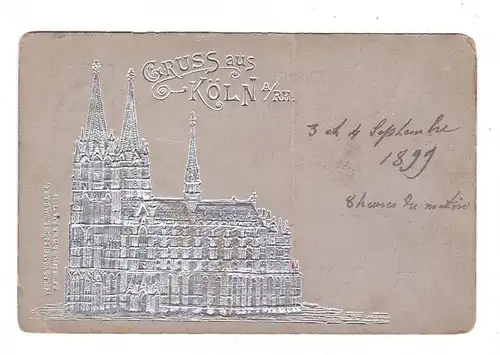 GRUSS aus
KÖLN A/RH.
3 et 4 Septembre
1899
8 heures du matin